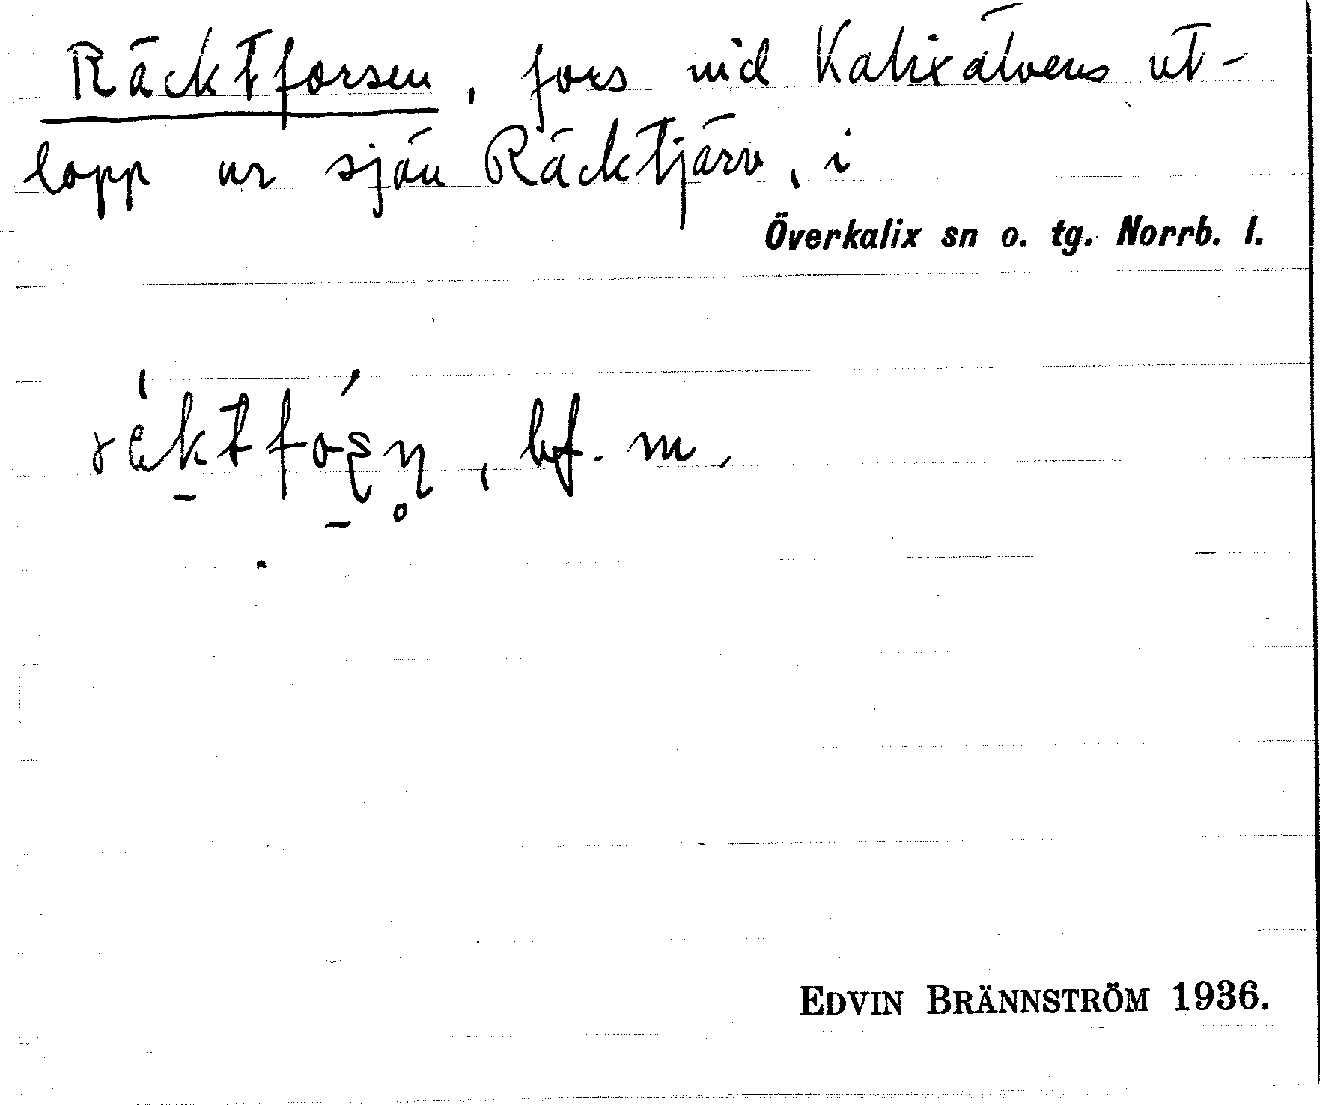 Räcktforsen, fors vid Kalixälvens ut-
lopp ur sjön Räcktjärv, i
Överkalix sn o. tg. Norrb. l.
, bf. m.
EDVIN BRÄNNSTRÖM 1936.